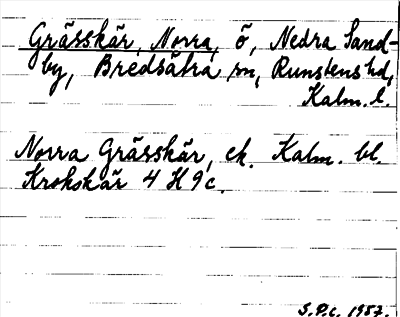 Grässkär, Norra, ö, Nedra Sand-
by, Bredsätra sn, Runstens hd,
Kalm. l.
Norra Grässkär, ek. Kalm. bl.
Krokskär 4 H 9c.
S.P.c. 1957.